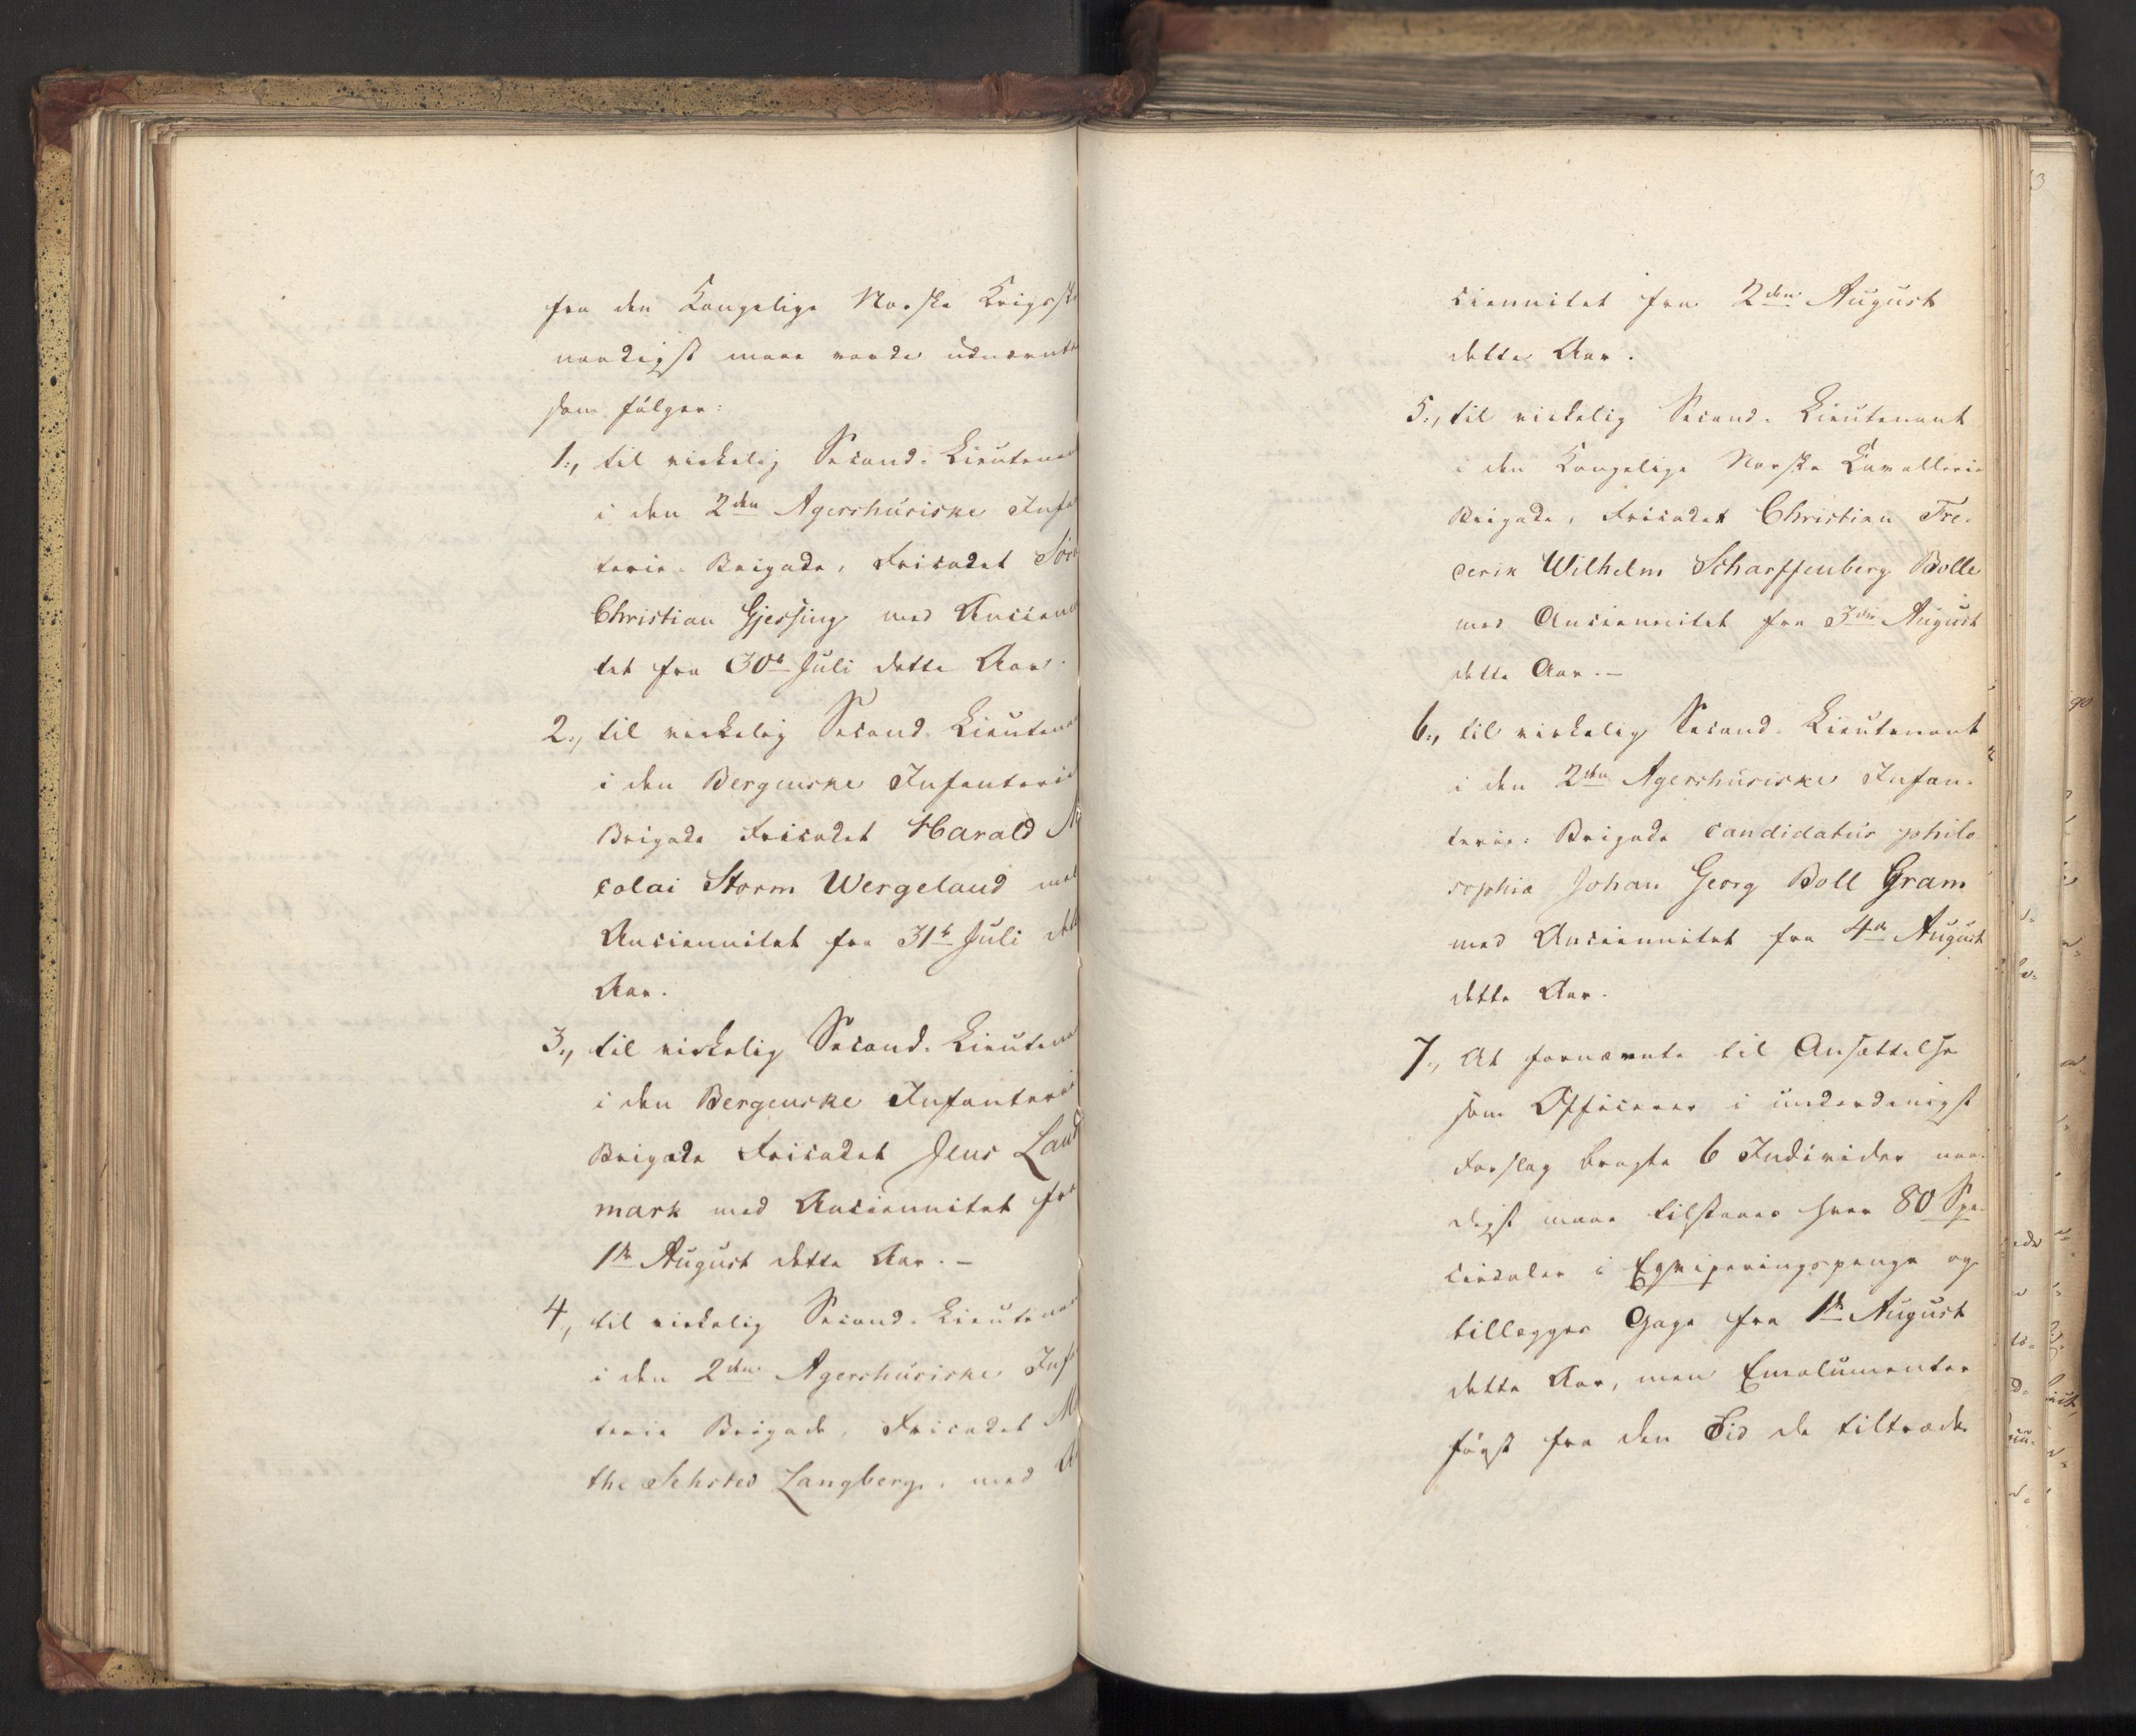 fra den Kongelige Norske Krigssk
naadigst maae vorde udnævnte
som følger:
1., til virkelig Second-Lieutenan
i den 2den Agershusiske Infa
terie-Brigade, Fricadet
Christian Gjessing med Ancienn
tet fra 30te Juli dette Aar.
2., til virkelig Second-Lieutenan
i den Bergenske Infanterie
Brigade Fricadet Harald N
colai Storm Wergeland med
Anciennitet fra 31te Juli dette
Aar.
3., til virkelig Second-Lieutenan
i den Bergenske Infanteri
Brigade Fricadet Jens Land
mark med Anciennitet fra
1ste August dette Aar. –
4., til virkelig Second-Lieutenan
i den 2den Agershusiske Infa
terie Brigade, Fricadet M
the Sehsted Langberg, med A
ciennitet fra 2den August
dette Aar.
5., til virkelig Second-Lieutenant
i den Kongelige Norske Cavallerie
Brigade, Fricadet Christian Fre-
derik Wilhelm Scharffenberg Bolle
med Anciennitet fra 3die August
dette Aar. –
6., til virkelig Second-Lieutenant
i den 2den Agershusiske Infan-
terie-Brigade candidatus philo
sophia Johan Georg Boll Gram
med Anciennitet fra 4de August
dette Aar.
7., At fornævnte til Ansættelse
som Officerer i underdanigst
Forslag bragte 6 Individer naa-
digst maae tilstaaes hver 80 Spe-
ciedaler i Eqviperingspenge og
tillægges Gage fra 1ste August
dette Aar, men Emolumenter
først fra den Tid de tiltræde